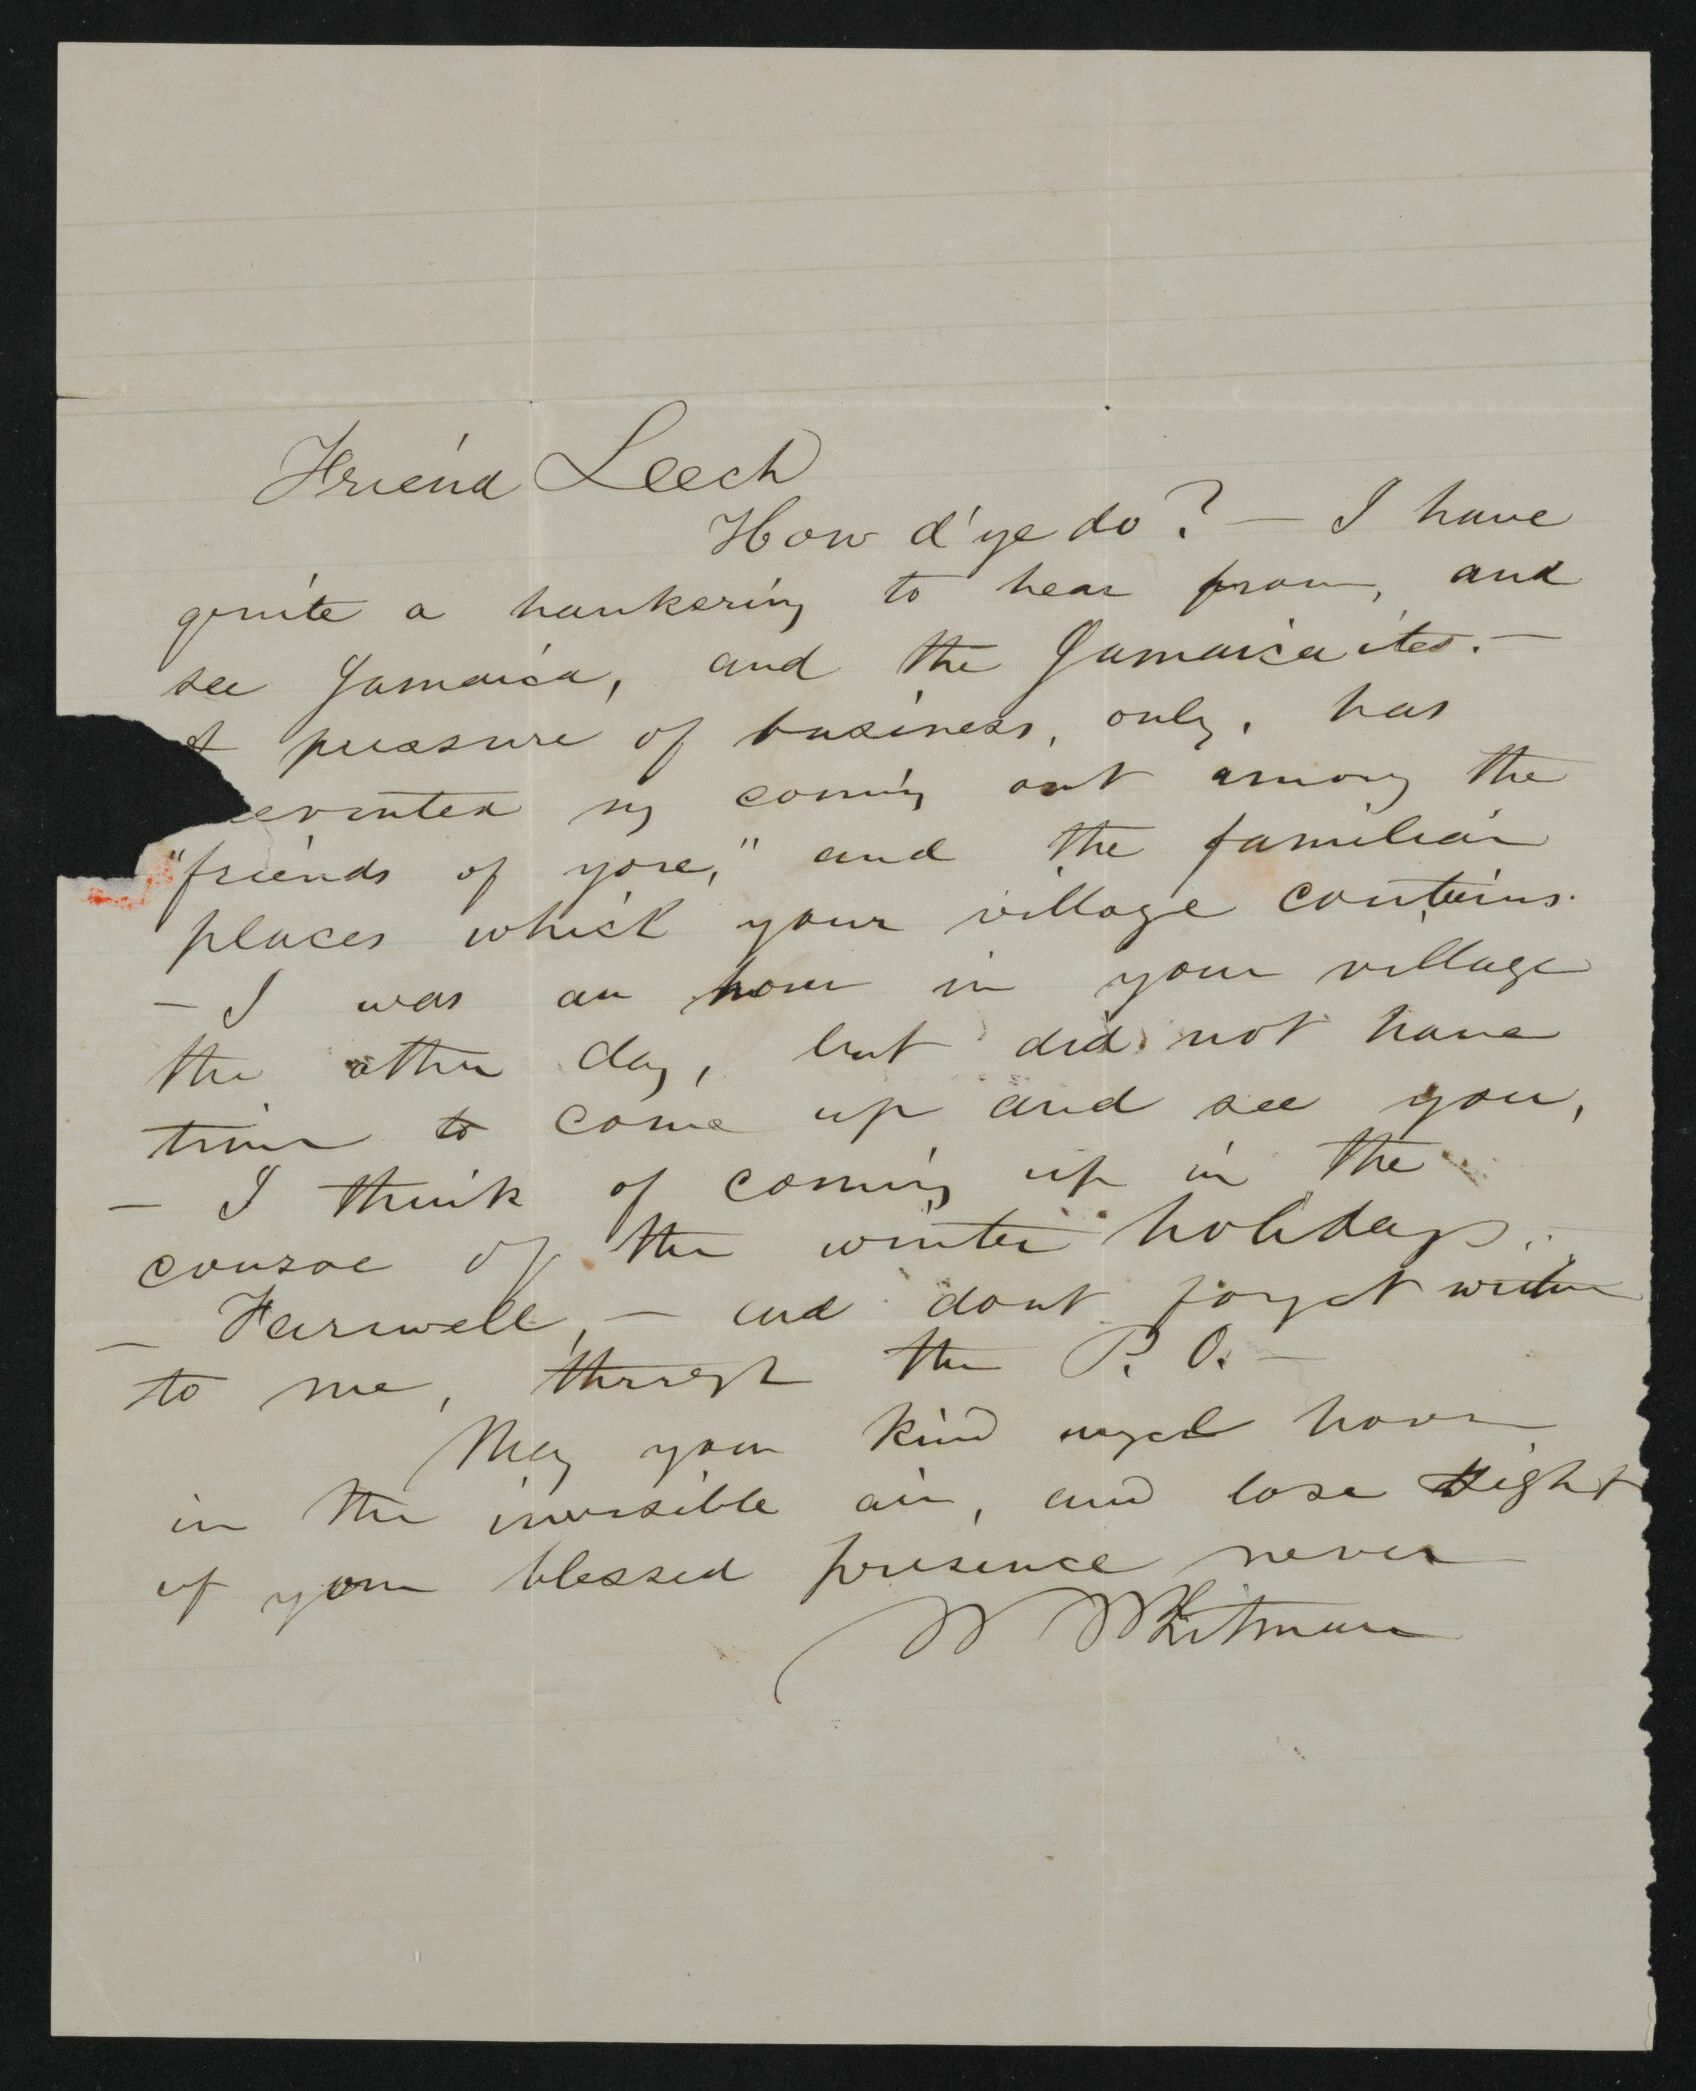 Friend Leech
How d'ye do? — I have
quite a hankering to hear from, and
see Jamaica, and the Jamaicaites. —
pressure of business, only, has
evented my coming out among the
"friends of yore," and the familiar
places which your village contains.
— I was an hour in your village
the other day, but did not have
time to come up and see you,
— I think of coming up in the
course of the winter holidays.
— Farewell, — and dont forget writing
to me, through the P. O. —
May your kind angel hover
in the invisible air, and lose sight
of your blessed presence never
W Whitman